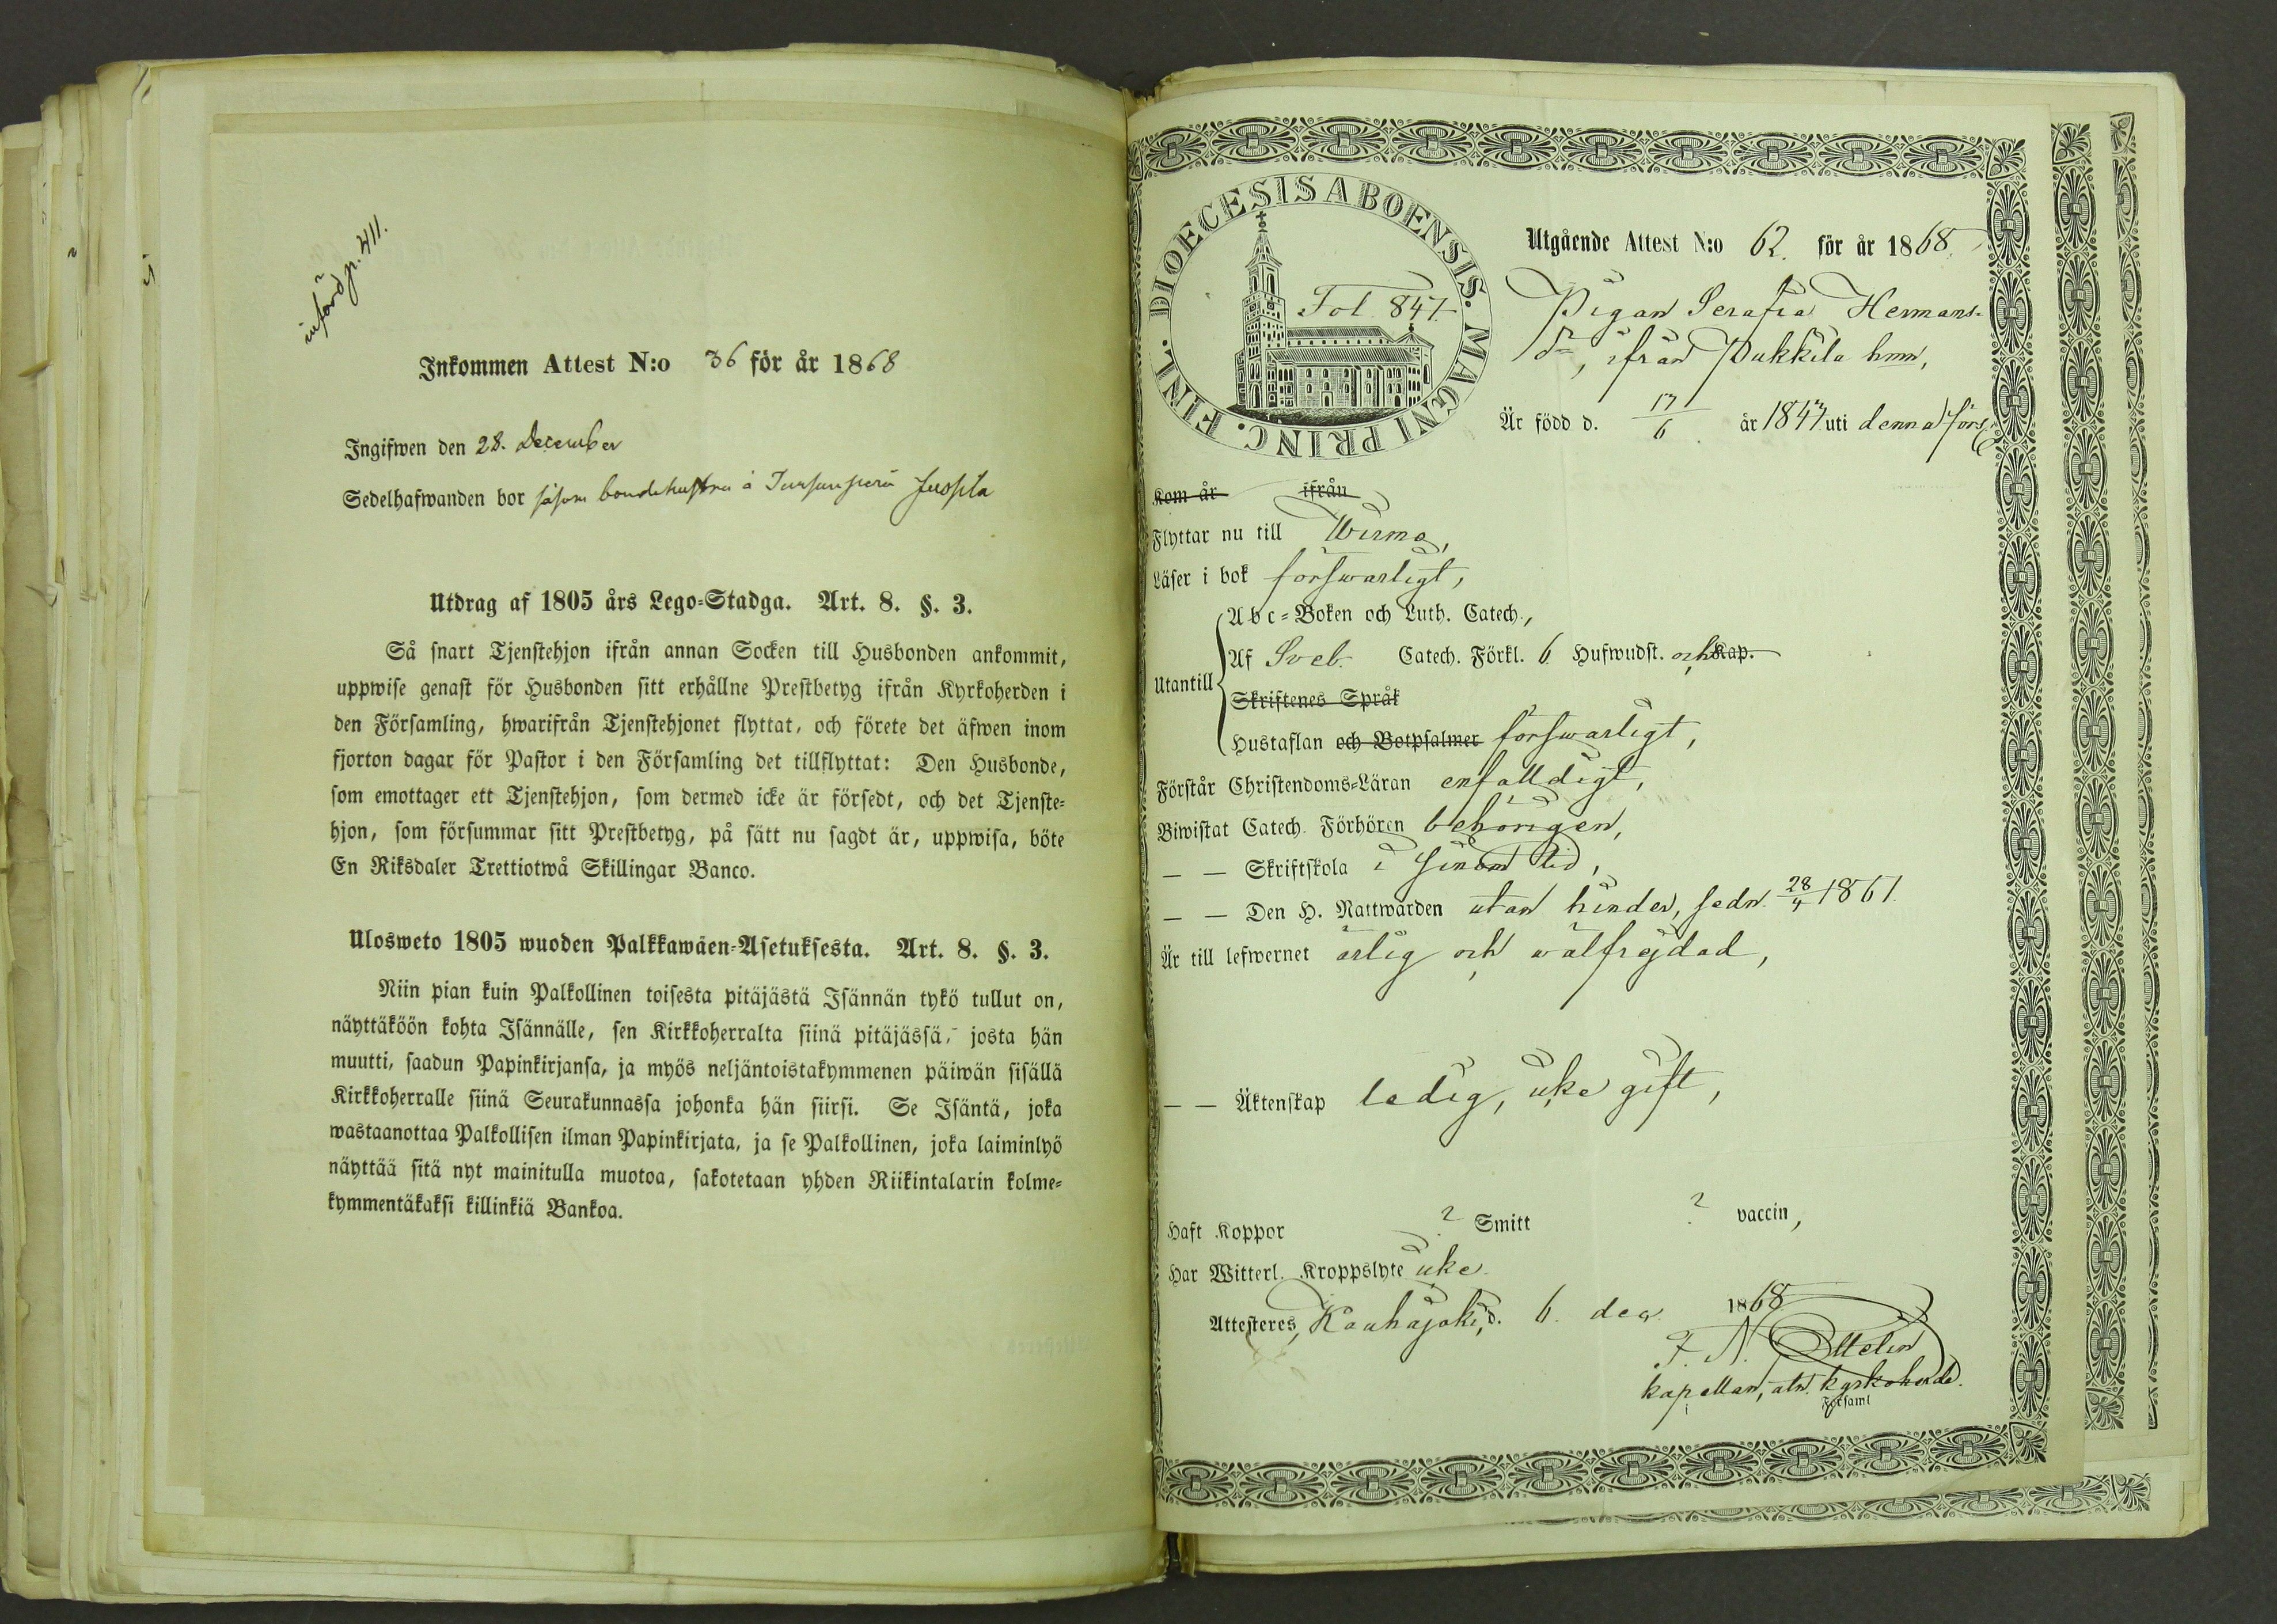 införd p. 411.
Inkommen Attest N:o 36 för år 1868
Ingifwen den 28. December
Sedelhafwanden bor såsom bondehustru å Juspila
Utdrag af 1805 års Lego-Stadga. Art. 8. §. 3.
Så snart Tjenstehjon ifrån annan Socken till Husbonden ankommit,
uppwise genast för Husbonden sitt erhållne Prestbetyg ifrån Kyrkoherden i
den Församling, hwarifrån Tjenstehjonet flyttat, och förete det äfwen inom
fjorton dagar för Pastor i den Församling det tillflyttat: Den Husbonde,
som emottager ett Tjenstehjon, som dermed icke är försedt, och det Tjenste-
hjon, som försummar sitt Prestbetyg, på sätt nu sagdt är, uppwisa, böte
En Riksdaler Trettiotwå Skillingar Banco.
Ulosweto 1805 wuoden Palkkawäen-Asetuksesta. Art. 8. §. 3.
Niin pian kuin Palkollinen toisesta pitäjästä Isännän tykö tullut on,
näyttäköön kohta Isännälle, sen Kirkkoherralta siinä pitäjässä, josta hän
muutti, saadun Papinkirjansa, ja myös neljäntoistakymmenen päiwän sisällä
Kirkkoherralle siinä Seurakunnassa johonka hän siirsi. Se Isäntä, joka
wastaanottaa Palkollisen ilman Papinkirjata, ja se Palkollinen, joka laiminlyö
näyttää sitä nyt mainitulla muotoa, sakotetaan yhden Riikintalarin kolme-
kymmentäkaksi killinkiä Bankoa.
DIOECESIS ABOENSIS. MAGNI PRINC. FINL.
Fol. 847
Utgående Attest N:o 62. för år 1868.
Pigan Serafia Hermans-
dr, ifrån Pukkila hmn,
Är född d. 17/6 år 1847 uti denna förs.
Kom år ifrån
Flyttar nu till Wirmo,
Läser i bok forswarligt,
Utantill
Abc-Boken och Luth. Catech.,
Af Sveb. Catech. Förkl. 6 Hufwudst. och Kap.
Skriftenes Språk
Hustaflan och Botpsalmer forswarligt,
Förstår Christendoms-Läran enfalldigt,
Biwistat Catech. Förhören behörigen,
— — Skriftskola i sinom tid,
— — Den H. Nattwarden utan hinder, sedn. 28/4 1861.
Är till lefwernet ärlig och wälfrejdad,
— — Äktenskap ledig, icke gift,
Haft Koppor ? Smitt ? vaccin,
Har Witterl. Kroppslyte icke.
Attesteres, Kauhajoki, d. 6. dec. 1868.
F. N. Ottelin
kapellan, atn. kyrkoherde.
i Församl